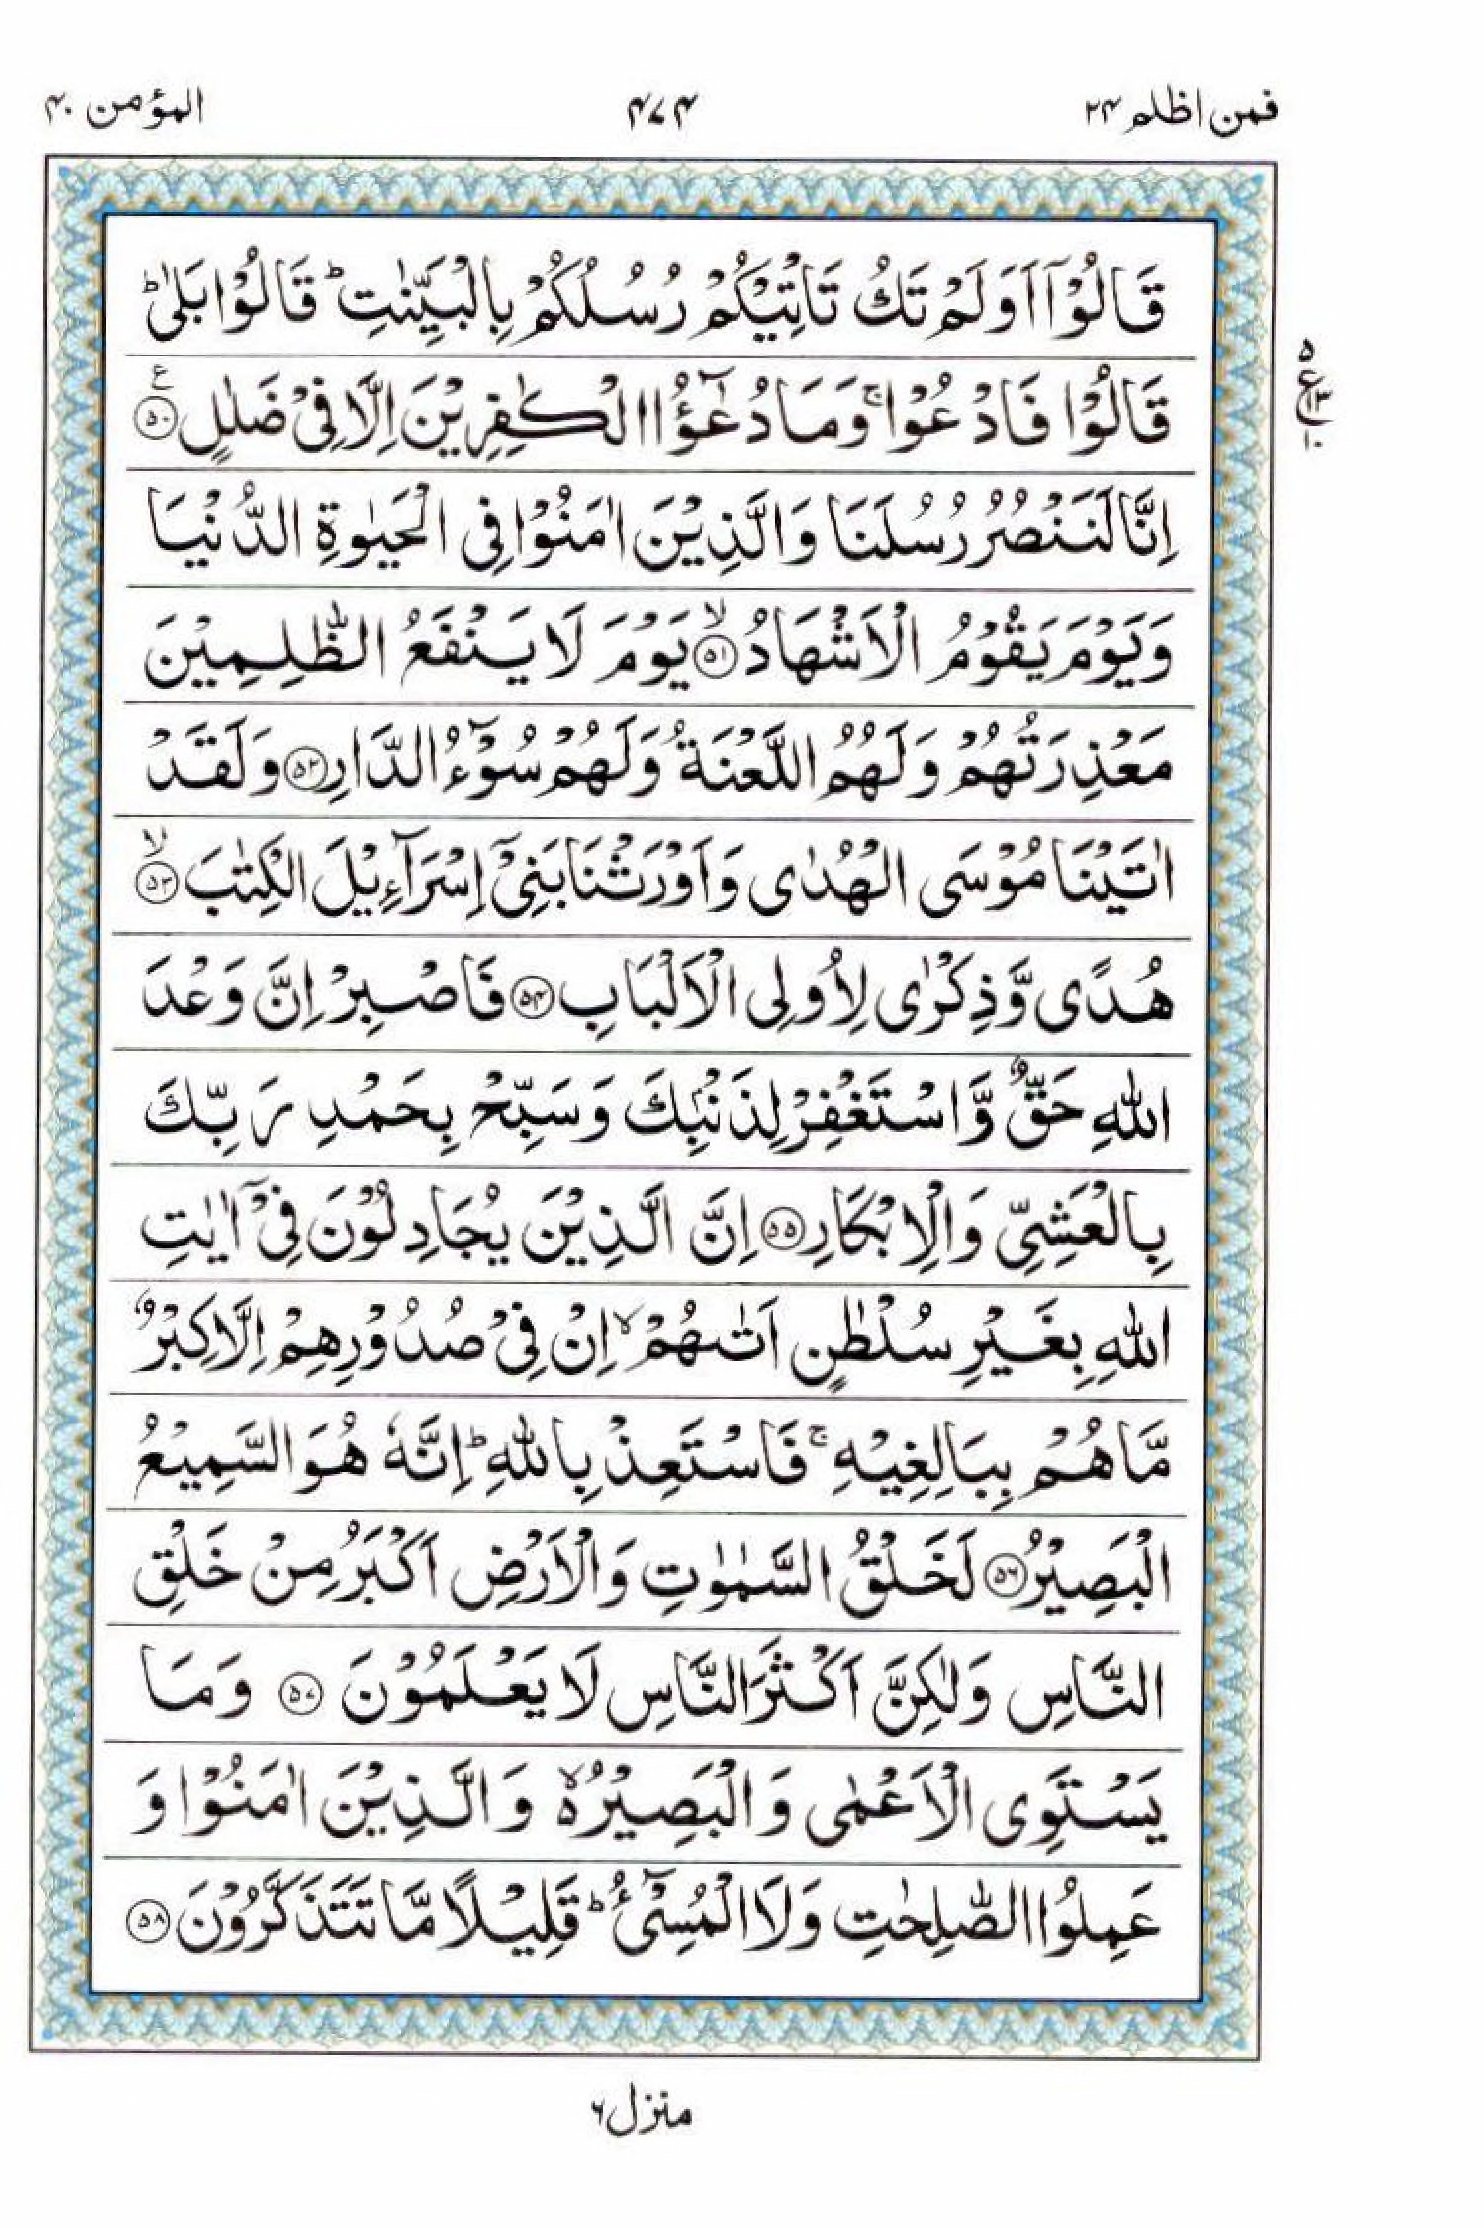 فمن اظلم ۲۴ ۴۷۴ المؤمن ۴۰
قَالُوْٓا اَوَلَمْ تَكُ تَاْتِيْكُمْ رُسُلُكُمْ بِالْبَيِّنٰتِ ؕ قَالُوْا بَلٰى ؕ
قَالُوْا فَادْعُوْا ۚ وَمَا دُعٰٓؤُا الْكٰفِرِيْنَ اِلَّا فِيْ ضَلٰلٍ ﴿۵۰﴾ ع
۵ ع ۱۳ ۱۰
اِنَّا لَنَنْصُرُ رُسُلَنَا وَالَّذِيْنَ اٰمَنُوْا فِي الْحَيٰوةِ الدُّنْيَا
وَيَوْمَ يَقُوْمُ الْاَشْهَادُ ﴿۵۱﴾ ۙ يَوْمَ لَا يَنْفَعُ الظّٰلِمِيْنَ
مَعْذِرَتُهُمْ وَلَهُمُ اللَّعْنَةُ وَلَهُمْ سُوْٓءُ الدَّارِ ﴿۵۲﴾ وَلَقَدْ
اٰتَيْنَا مُوْسَى الْهُدٰى وَاَوْرَثْنَا بَنِيْٓ اِسْرَآءِيْلَ الْكِتٰبَ ﴿۵۳﴾ ۙ
هُدًى وَّذِكْرٰى لِاُولِى الْاَلْبَابِ ﴿۵۴﴾ فَاصْبِرْ اِنَّ وَعْدَ
اللّٰهِ حَقٌّ وَّاسْتَغْفِرْ لِذَنْۢبِكَ وَسَبِّحْ بِحَمْدِ رَبِّكَ
بِالْعَشِيِّ وَالْاِبْكَارِ ﴿۵۵﴾ اِنَّ الَّذِيْنَ يُجَادِلُوْنَ فِيْٓ اٰيٰتِ
اللّٰهِ بِغَيْرِ سُلْطٰنٍ اَتٰىهُمْ ۙ اِنْ فِيْ صُدُوْرِهِمْ اِلَّا كِبْرٌ
مَّا هُمْ بِبَالِغِيْهِ ۚ فَاسْتَعِذْ بِاللّٰهِ ؕ اِنَّهٗ هُوَ السَّمِيْعُ
الْبَصِيْرُ ﴿۵۶﴾ لَخَلْقُ السَّمٰوٰتِ وَالْاَرْضِ اَكْبَرُ مِنْ خَلْقِ
النَّاسِ وَلٰكِنَّ اَكْثَرَ النَّاسِ لَا يَعْلَمُوْنَ ﴿۵۷﴾ وَمَا
يَسْتَوِى الْاَعْمٰى وَالْبَصِيْرُ ۙ۬ وَالَّذِيْنَ اٰمَنُوْا وَ
عَمِلُوا الصّٰلِحٰتِ وَلَا الْمُسِيْٓءُ ؕ قَلِيْلًا مَّا تَتَذَكَّرُوْنَ ﴿۵۸﴾
منزل ۶